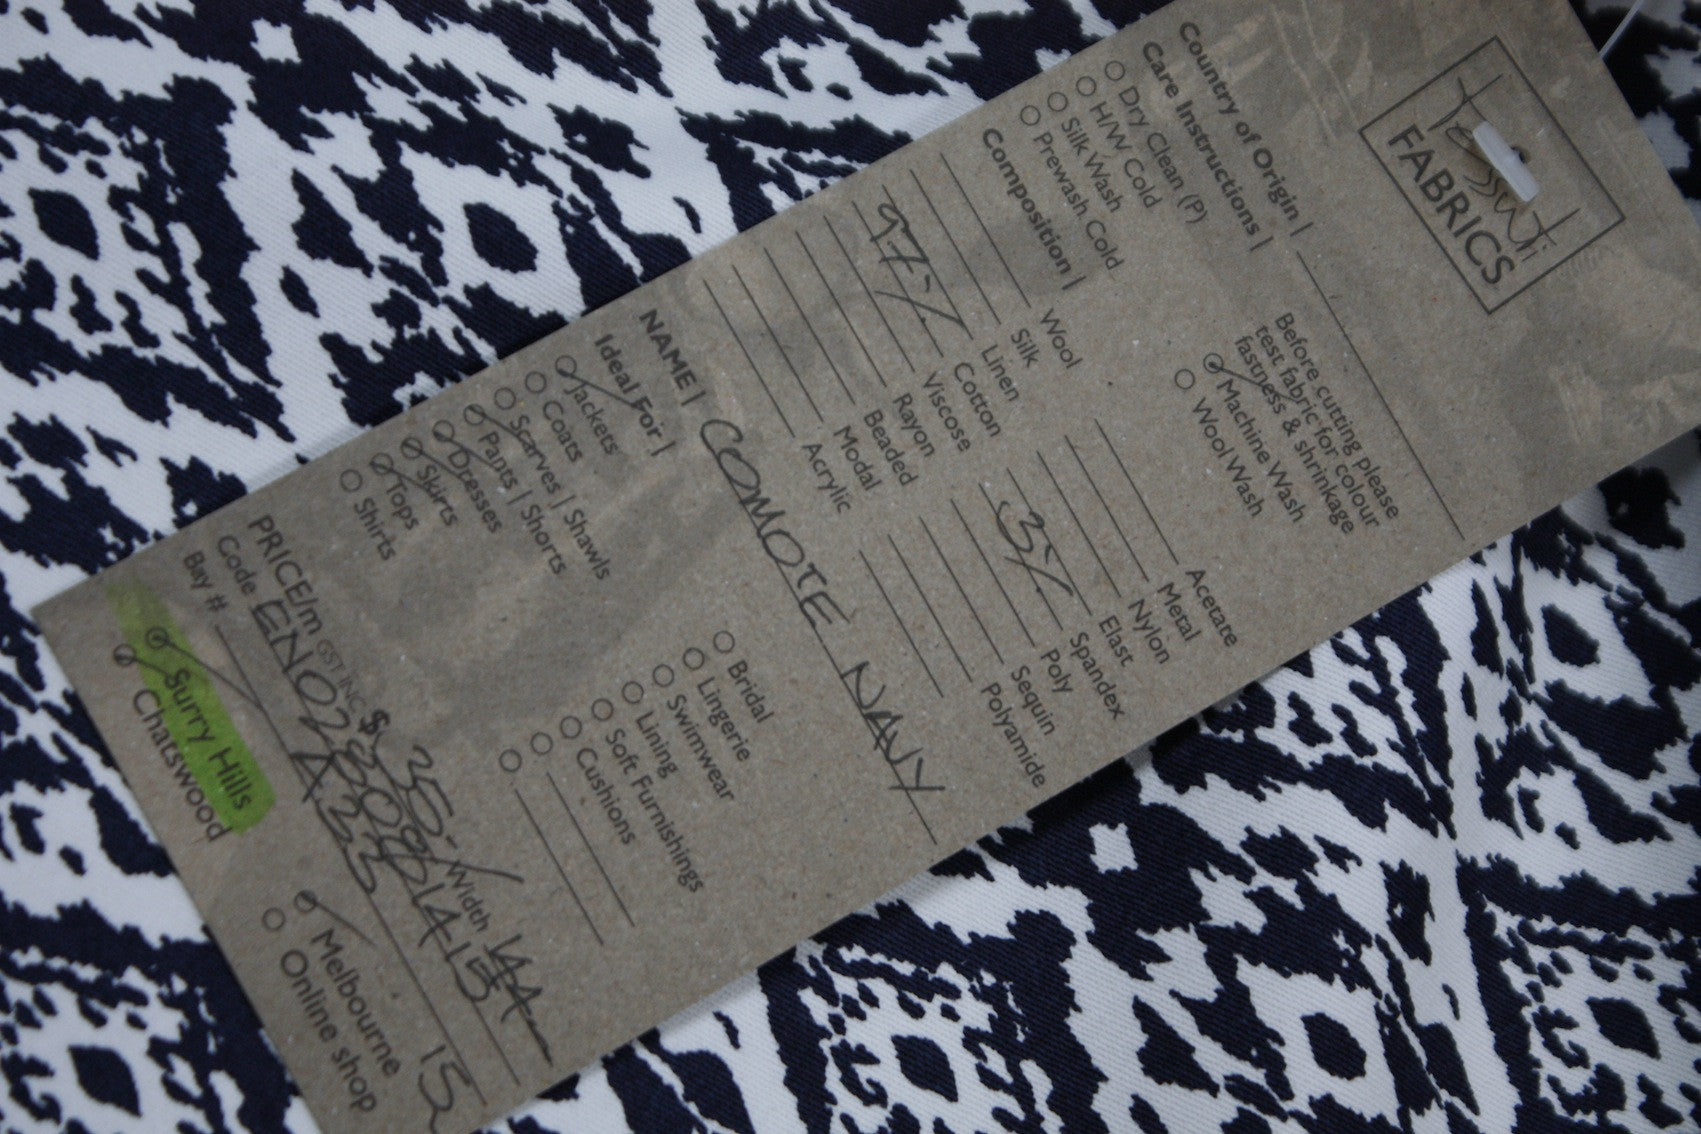 Tessuti
FABRICS
Country of Origin |
Care Instructions |
Dry Clean (P)
H/W Cold
Silk Wash
Prewash Cold
Before cutting please
test fabric for colour
fastness & shrinkage
Machine Wash
Wool Wash
Composition |
Wool
Silk
Linen
97% Cotton
Viscose
Rayon
Beaded
Modal
Acrylic
Acetate
Metal
Nylon
Elast
3% Spandex
Poly
Sequin
Polyamide
NAME | COMOTE NAVY
Ideal For |
Jackets
Coats
Scarves | Shawls
Pants | Shorts
Dresses
Skirts
Tops
Shirts
Bridal
Lingerie
Swimwear
Lining
Soft Furnishings
Cushions
PRICE/m GST INC $ 35- Width 144
Code
Bay # A 23 15
Surry Hills
Chatswood
Melbourne
Online shop